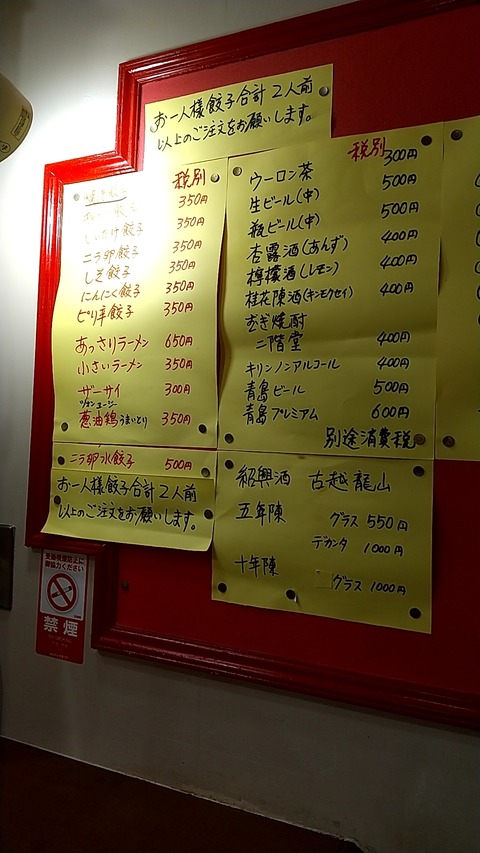 お一人様餃子合計2人前
以上のご注文をお願いします。
税別
350円
350円
しいたけ餃子 350円
ニラ卵餃子 350円
しそ餃子 350円
にんにく餃子 350円
ピリ辛餃子 350円
あっさりラーメン 650円
小さいラーメン 350円
ザーサイ 300円
ツォンユージー
葱油鶏うまいとり 350円
ニラ卵水餃子 500円
お一人様餃子合計2人前
以上のご注文をお願いします。
税別
ウーロン茶 300円
生ビール(中) 500円
瓶ビール(中) 500円
杏露酒(あんず) 400円
檸檬酒(レモン) 400円
桂花陳酒(キンモクセイ) 400円
むぎ焼酎
二階堂 400円
キリンノンアルコール 400円
青島ビール 500円
青島プレミアム 600円
別途消費税
紹興酒 古越龍山
五年陳 グラス 550円
デカンタ 1000円
十年陳 グラス 1000円
受動喫煙防止に
御協力ください
禁煙